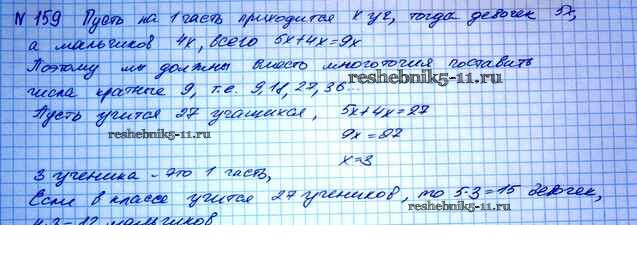 №159 Пусть на 1 часть приходится x уч, тогда девочек 5x,
а мальчиков 4x, всего 5x+4x=9x
Поэтому мы должны вместо многоточия поставить
reshebnik5-11.ru
числа кратные 9, т.е. 9,18,27,36...
Пусть учится 27 учащихся, 5x+4x=27
reshebnik5-11.ru
9x=27
x=3
3 ученика - это 1 часть,
Если в классе учится 27 учеников, то 5·3=15 девочек,
reshebnik5-11.ru
4·3=12 мальчиков